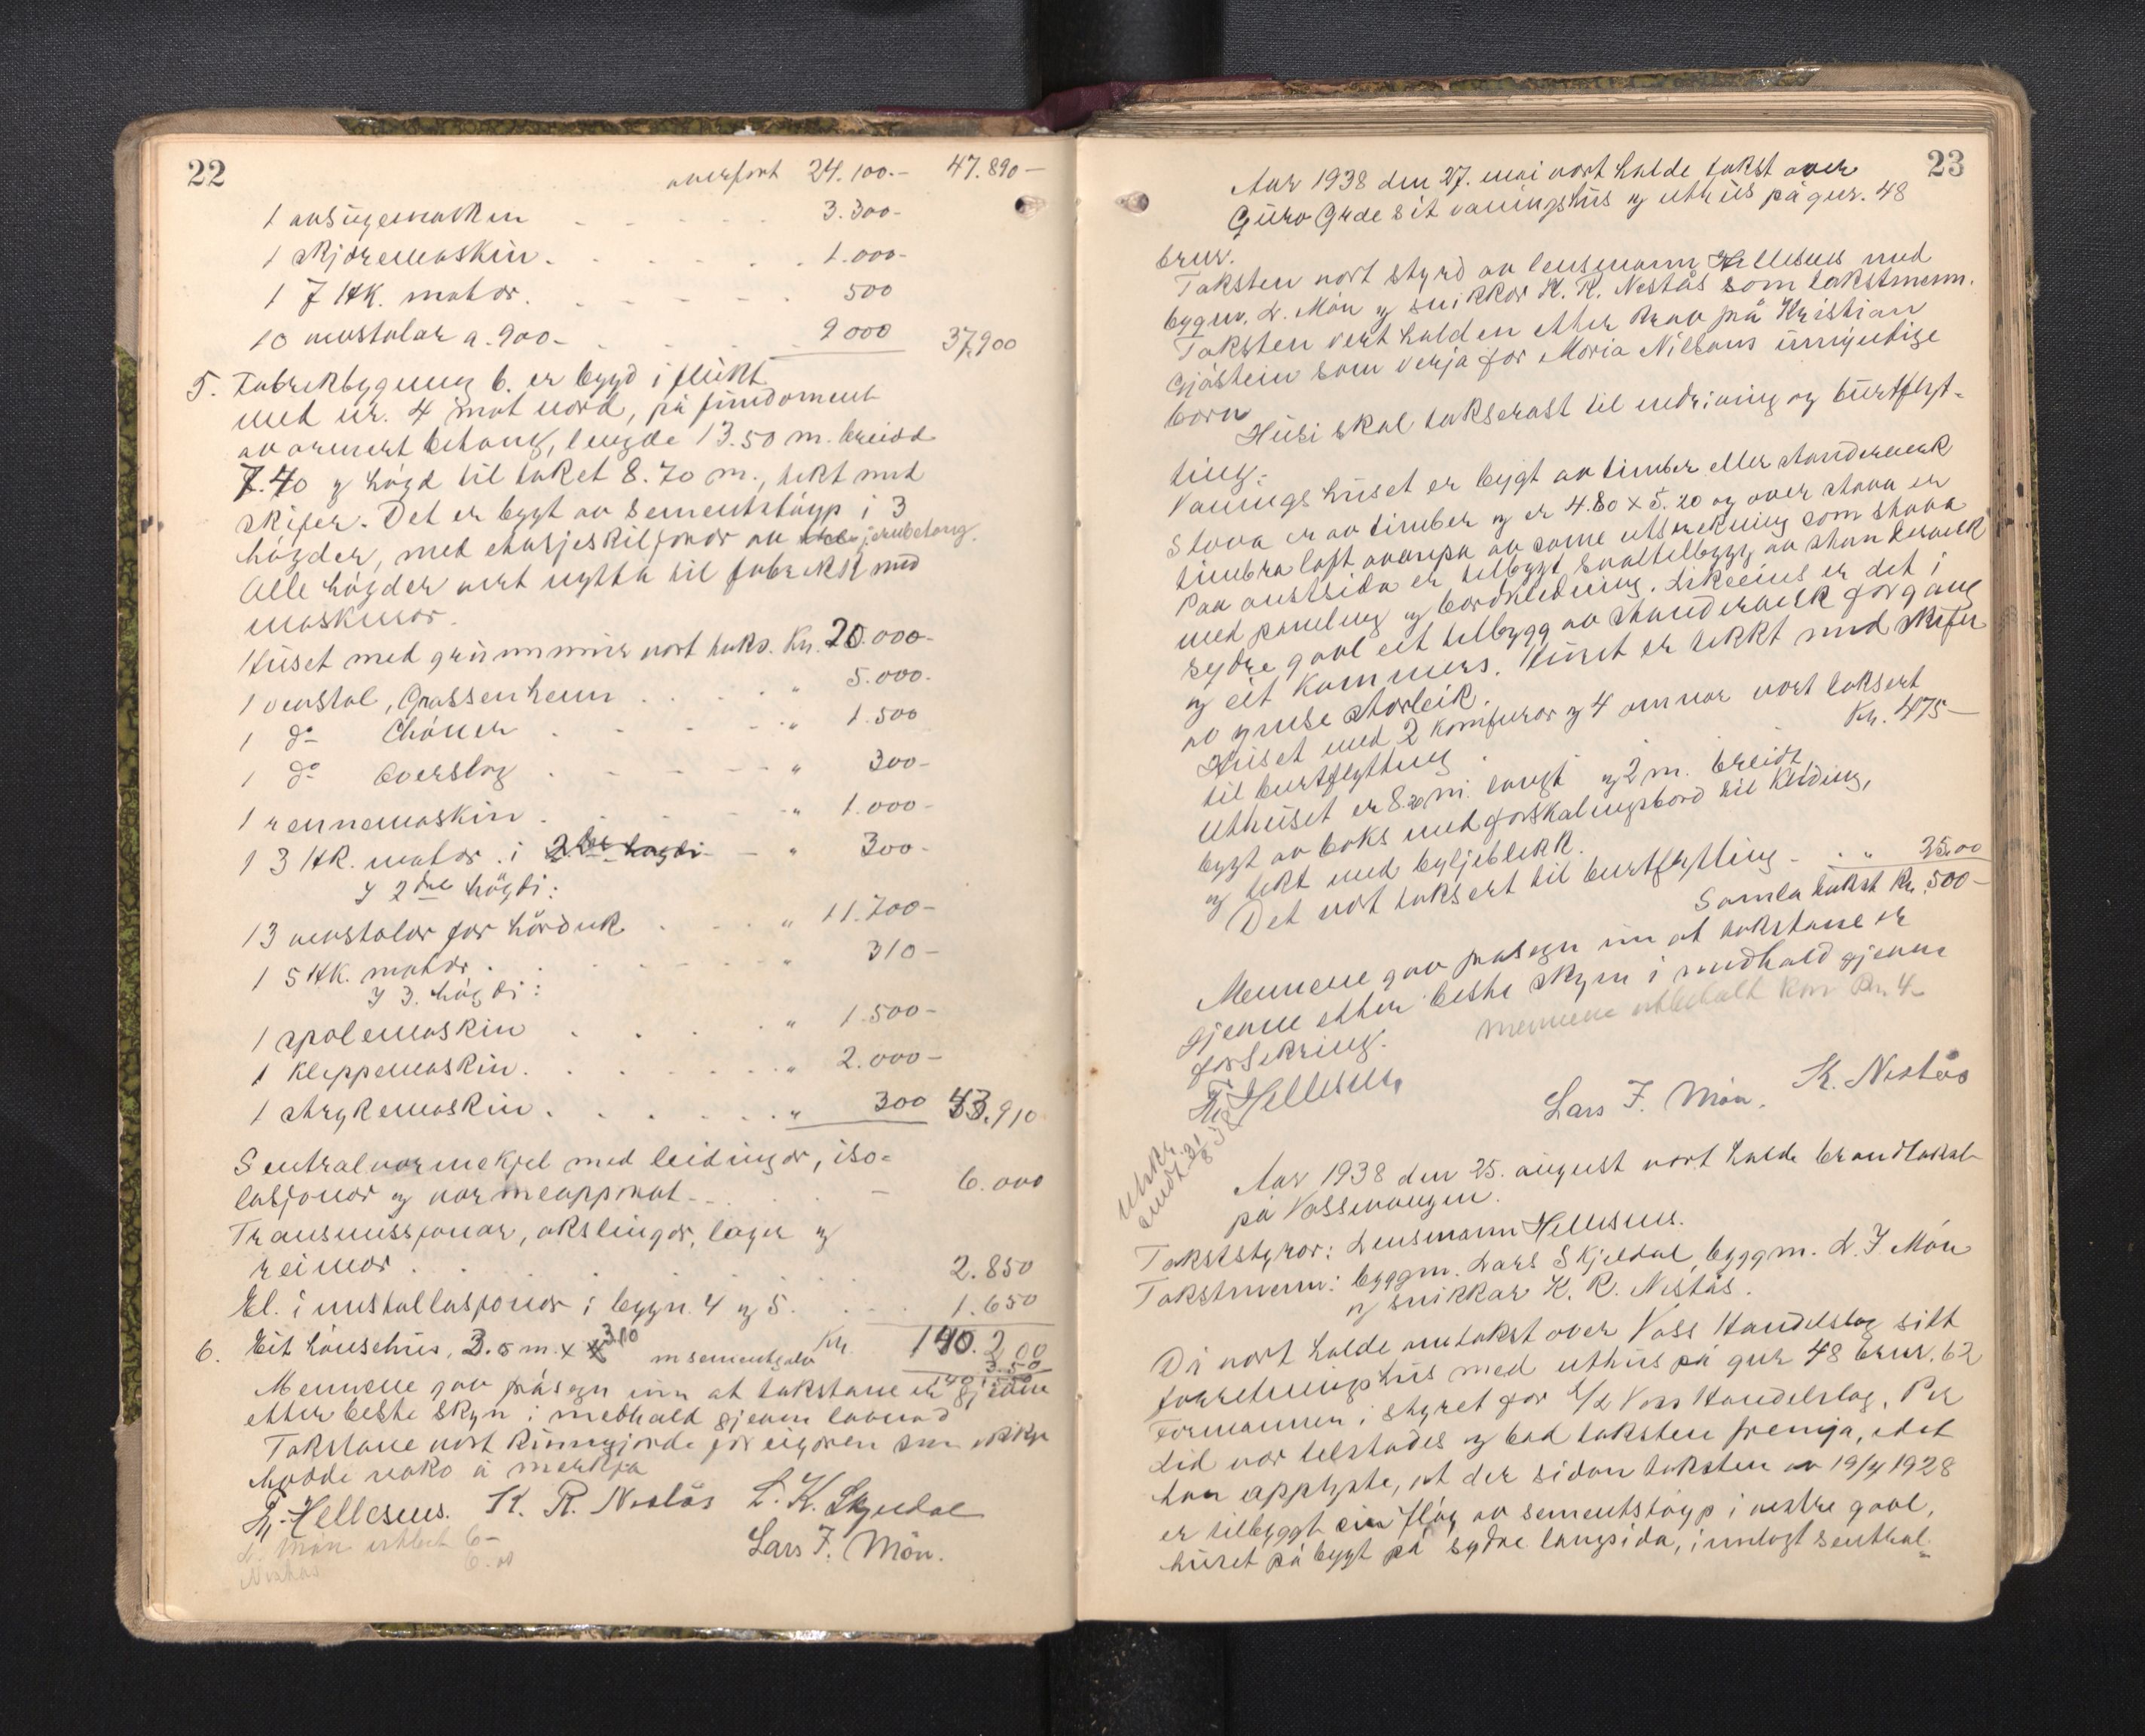 22
overført 24.100.- 47.890-
1 avsugemaskin 3.300-
1 skjæremaskin. 1.000-
1 7 HK. motor. 500
10 vevstolar a. 900- 9000 37,900
5. Fabrikbygning b. er bygd i flukt
med nr. 4 mot nord, på fundament
av armert betong, lengde 13.50 m. breidd
7.40 og høgd til taket 8.70 m., tekt med
skifer. Det er bygt av sementstøyp i 3
høgder, med etasjeskiljonar av jernbetong.
Alle høgder vert nytta til fabrikk med
maskinor.
Huset med grunnmur vort taks. Kr. 20.000-
1 vevstol, Grossenheim " 5.000-
1 do Chöner " 1.500
1 do Overslag " 300-
1 rennemaskin. " 1.000-
1 3 HK. motor. i 2dre høgdi " 300-
I 2dre høgdi:
13 vevstolar for hårduk " 11.700-
1 5 HK. motor. " 310-
I 3. høgdi:
1 spolemaskin " 1.500-
1 kleppemaskin. " 2.000-
1 strykemaskin. " 300 43.910
Sentralvarmekjel med leidingar, iso=
lasjonar og varmeapparat - 6.000
Transmissjonar, akslingar, lager og
reimar 2.850
El. installasjonar i bygn. 4 og 5. 1.650
6. Eit hønsehus, 3.5 m. x 310 m sementgolv Kr. 140.200
350
Mennene gav påsegn um at takstane er gjevne
etter beste skyn i medhald gjevne lovnad
Takstane vort kunngjorde for eigaren som ikkje
hadde noko å merkja
Hellesnes. K. R. Nestås L. K. Skjeldal
Lars F. Møn.
L. Møn utbet 6-
Nestås 6.00
23
Aar 1938 den 27. mai vort halde takst over
Guro Gjrde sit vaaningshus og uthus på gnr. 48
brnr.
Taksten vort styrd av lensmann Hellesnes med
bygm. L. Møn og snikkar K. R. Nestås som takstmenn.
Taksten vert halden etter krav frå Kristian
Gjøstein som verja for Maria Nilsens umyndige
born
Husi skal takserast til nedriving og burtflyt-
ting:
Vaaningshuset er bygt av timber eller standerverk
Stova er av timber og er 4.80 x 5.20 og over stova er
timbra loft ovanpa av same utstrekning som stova
Paa austsida er tilbygt, svaltilbygg av standerverk
med paneling og bordkledning. Likeeins er det i
sydre gavl eit tilbygg av standerverk for gang
og eit kammers. Huset er tekkt med skifer
av ymse storleik.
Huset med 2 komfurar og 4 omnar vort taksert
til burtflytting Kr. 475-
Uthuset er 8.20 m. langt og 2 m. breidt,
bygt av boks med forskalingsbord til kleding,
og tekt med bylgjeblekk.
Det vort taksert til burtflytting - " 25,00
Samla takst Kr. 500-
Mennene gav påsegn um at takstane er
gjevne etter beste skyn i medhald gjevne
forsikring.
Mennene utbetalt kvar Kr. 4-
Hellesnes
Lars F. Møn. K. Nestås
Utskr.
sendt 31
8 38
Aar 1938 den 25. august vort halde brandtakst
på Vossevangen.
Takststyrar: Lensmann Hellesnes.
Takstmenn: byggm. Lars Skjeldal, byggm. L. F. Møn
og snikkar K. R. Nestås.
Då vort halde omtakst over Voss Handelslag sitt
forretningshus med uthus på gnr 48 brnr. 62
Formannen i styret for S/L Voss Handelslag, Per
Lid var tilstades og bad taksten fremja, idet
han opplyste, at der sidan taksten av 19/4 1928
er tilbyggt ein fløy av sementstøyp i vestre gavl,
huset på bygt på sydre langsida, innlagt sentral=